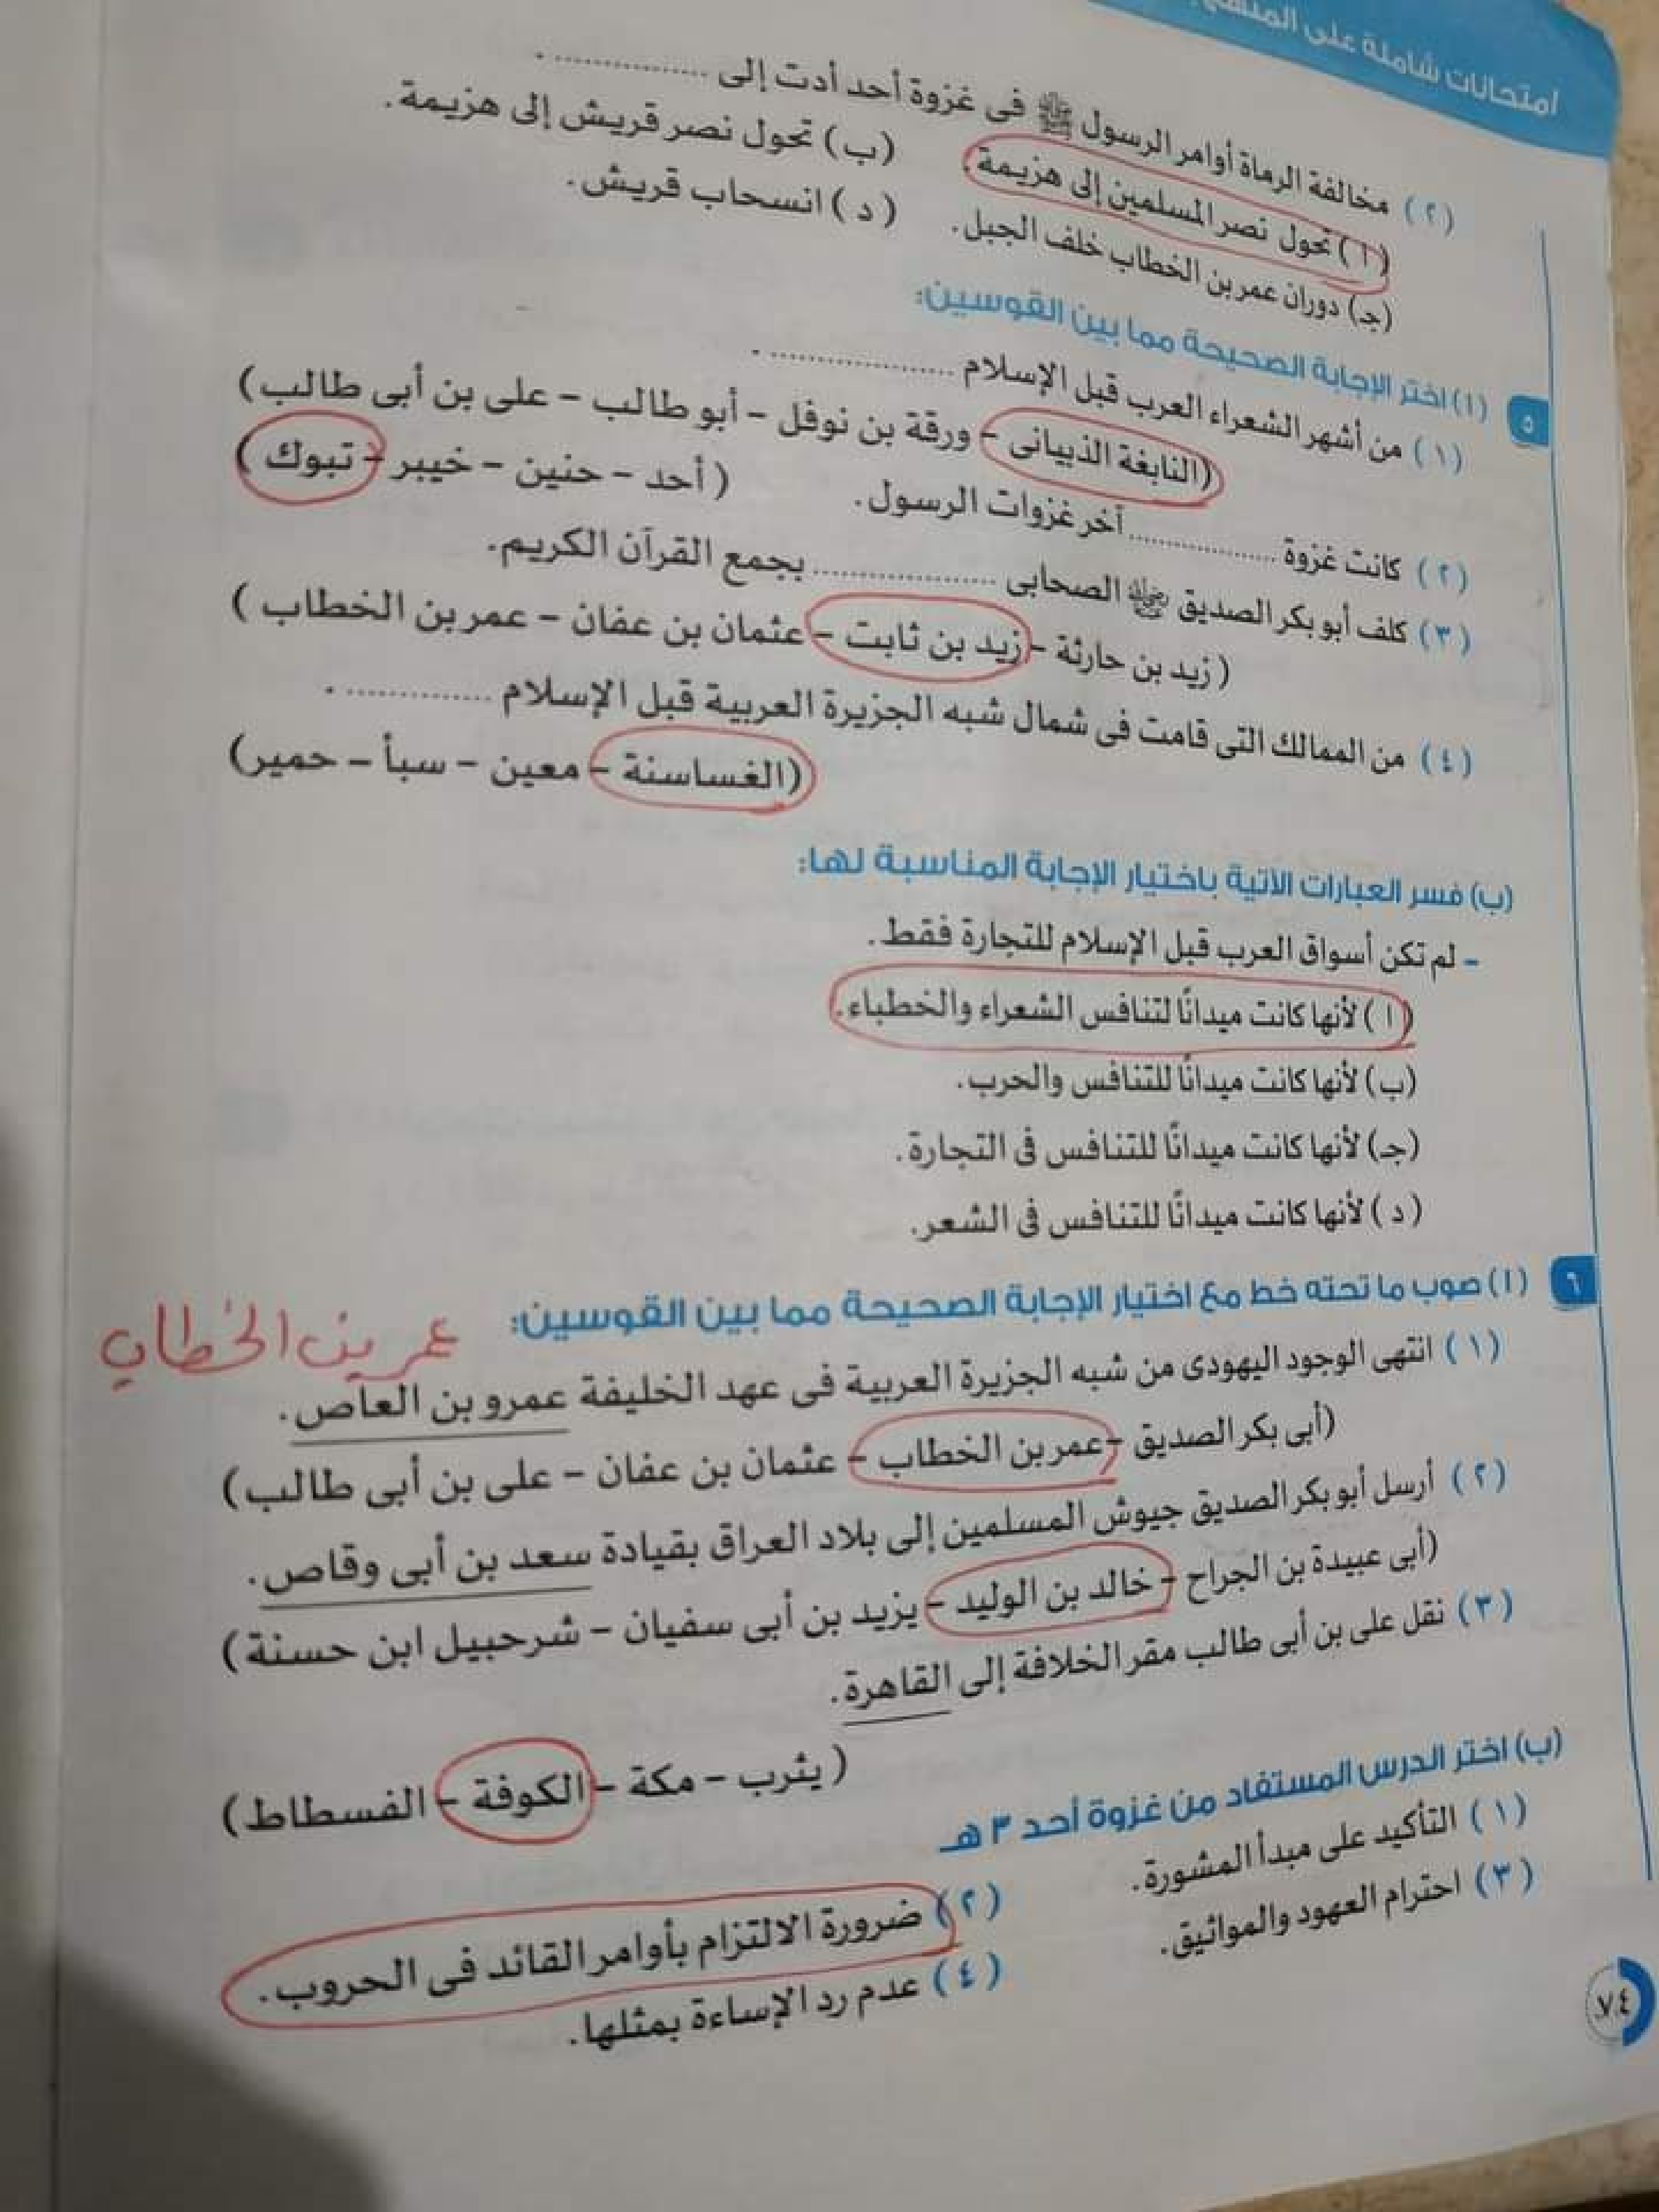 امتحانات شاملة على المنهج
(٢) مخالفة الرماة أوامر الرسول ﷺ فى غزوة أحد أدت إلى ................ .
(ا) تحول نصر المسلمين إلى هزيمة. (ب) تحول نصر قريش إلى هزيمة.
(جـ) دوران عمر بن الخطاب خلف الجبل. (د) انسحاب قريش.
٥ (ا) اختر الإجابة الصحيحة مما بين القوسين:
(١) من أشهر الشعراء العرب قبل الإسلام ................ .
(النابغة الذبيانى – ورقة بن نوفل – أبو طالب – على بن أبى طالب)
(٢) كانت غزوة ................ آخر غزوات الرسول. (أحد – حنين – خيبر – تبوك)
(٣) كلف أبو بكر الصديق رضي الله عنه الصحابى ................ بجمع القرآن الكريم.
(زيد بن حارثة – زيد بن ثابت – عثمان بن عفان – عمر بن الخطاب)
(٤) من الممالك التى قامت فى شمال شبه الجزيرة العربية قبل الإسلام ................ .
(الغساسنة – معين – سبأ – حمير)
(ب) فسر العبارات الآتية باختيار الإجابة المناسبة لها:
– لم تكن أسواق العرب قبل الإسلام للتجارة فقط.
(ا) لأنها كانت ميدانًا لتنافس الشعراء والخطباء.
(ب) لأنها كانت ميدانًا للتنافس والحرب.
(جـ) لأنها كانت ميدانًا للتنافس فى التجارة.
(د) لأنها كانت ميدانًا للتنافس فى الشعر.
٦ (ا) صوب ما تحته خط مع اختيار الإجابة الصحيحة مما بين القوسين:
عمر بن الخطاب
(١) انتهى الوجود اليهودى من شبه الجزيرة العربية فى عهد الخليفة عمرو بن العاص.
(أبى بكر الصديق – عمر بن الخطاب – عثمان بن عفان – على بن أبى طالب)
(٢) أرسل أبو بكر الصديق جيوش المسلمين إلى بلاد العراق بقيادة سعد بن أبى وقاص.
(أبى عبيدة بن الجراح – خالد بن الوليد – يزيد بن أبى سفيان – شرحبيل ابن حسنة)
(٣) نقل على بن أبى طالب مقر الخلافة إلى القاهرة.
(يثرب – مكة – الكوفة – الفسطاط)
(ب) اختر الدرس المستفاد من غزوة أحد ٣ هـ
(١) التأكيد على مبدأ المشورة. (٢) ضرورة الالتزام بأوامر القائد فى الحروب.
(٣) احترام العهود والمواثيق. (٤) عدم رد الإساءة بمثلها.
٧٤